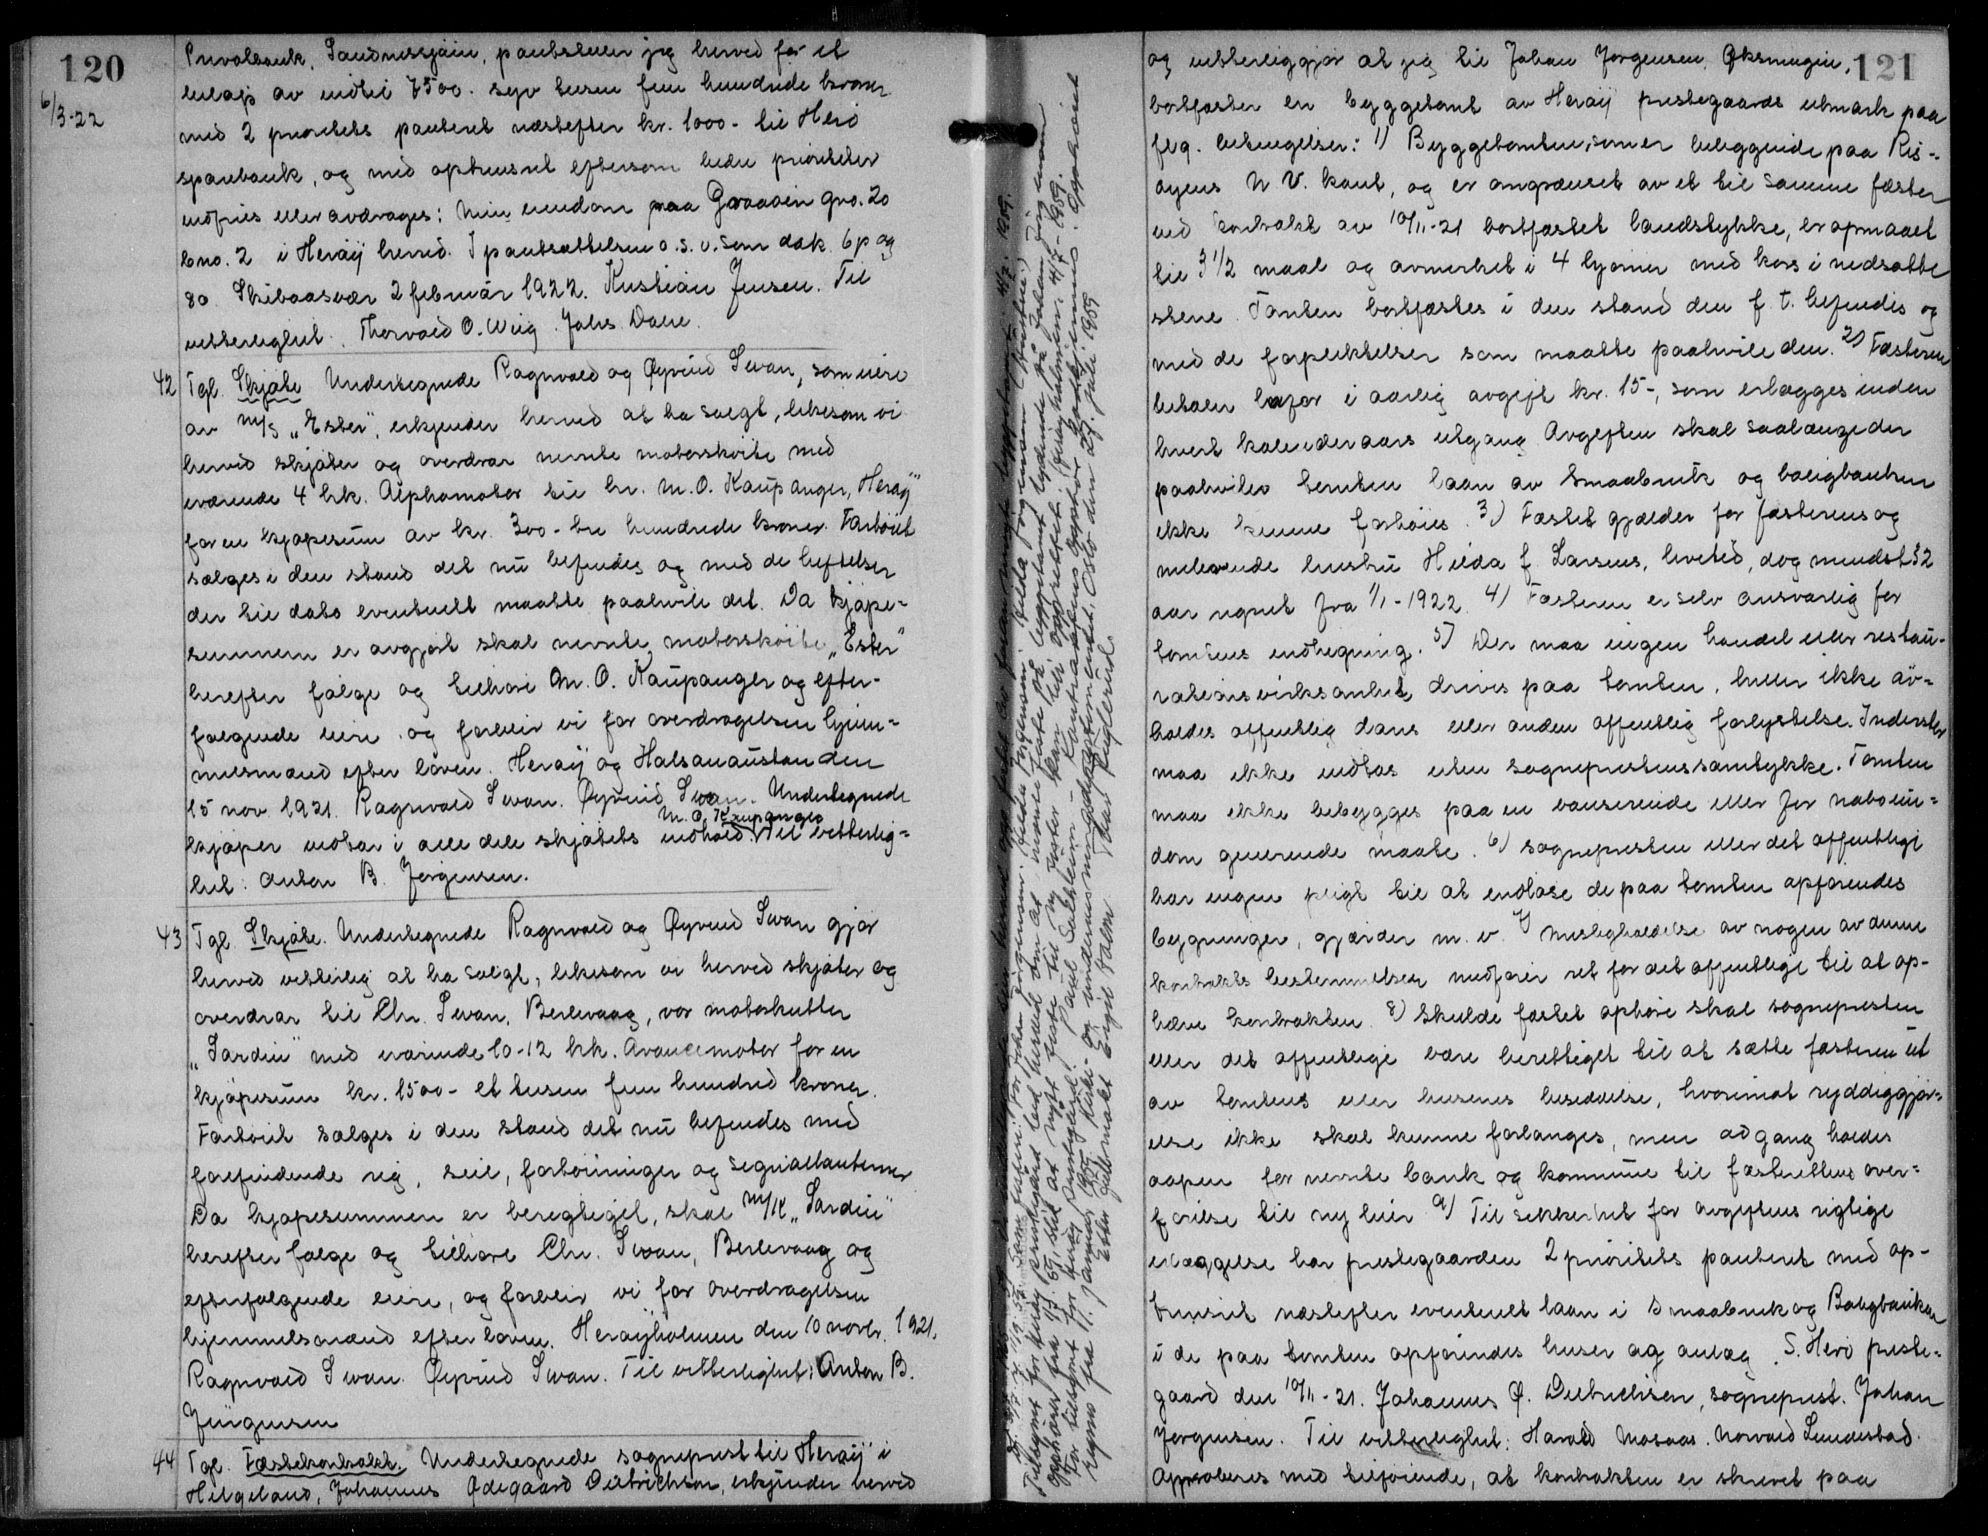 120
6/3-22
Privatbank, Sandnessjøen, pantsetter jeg herved for et
utlaps av indtil 7500. syv tusen fem hundrede kroner
med 2 prioritets panteret næstefter kr. 1000- til Herø
sparebank, og med optrinsret eftersom bedre prioriteter
indfries eller avdrages: Min eiendom paa Graaøen gno. 20
bno. 2 i Herøy herred. I pantsættelsen o.s.v. som dok. 6 pag
80. Skibaasvær 2 februar 1922. Kristian Jensen. Til
vitterlighet. Thorvald O. Wiig. Johs. Dahle.
42 Tgl. Skjøte Undertegnede Ragnvald og Øyvind Swan, som eiere
av M/S "Ester", erkjender herved at ha solgt, likesom vi
herved skjøter og overdrar nevnte motorskøite med
iværende 4 hk. Alphamotor til hr. M. O. Kaupanger, Herøy
for en kjøpesum av kr. 300- tre hundrede kroner. Fartøiet
sælges i den stand det nu befindes og med de heftelser
der til dato eventuelt maatte paahvile det. Da kjøpe-
summen er avgjort skal nevnte motorskøite "Ester"
herefter følge og tilhøre M. O. Kaupanger og efter-
følgende eiere og forblir vi for overdragelsen hjem-
melsmænd efter loven. Herøy og Halsanaustan den
15 nov. 1921. Ragnvald Swan. Øyvind Swan. Undertegnede
M. O. Kaupanger
kjøper vedtar i alle dele skjøtets indhold. Til vitterlig-
het: Anton B. Jørgensen.
43 Tgl. Skjøte. Undertegnede Ragnvald og Øyvind Swan gjør
herved vitterlig at ha solgt, likesom vi herved skjøter og
overdrar til Chr. Swan, Berlevaag, vor motorkutter
"Sardin" med iværende 10-12 hk. Avancemotor for en
kjøpesum kr. 1500- et tusen fem hundred kroner.
Fartøiet sælges i den stand det nu befindes med
forefindende rig, seil, fortøininger og signallanterner
Da kjøpesummen er berigtiget, skal M/K "Sardin"
herefter følge og tilhøre Chr. Swan, Berlevaag og
efterfølgende eiere, og forblir vi for overdragelsen
hjemmelsmænd efter loven. Herøyholmen den 10 novbr. 1921.
Ragnvald Swan. Øyvind Swan. Til vitterlighet: Anton B.
Jørgensen
44 Tgl. Fæstekontrakt. Undertegnede sogneprest til Herøy i
Helgeland, Johannes Ødegaard Deitrichson, erkjender herved
121
og vitterliggjør at jeg til Johan Jørgensen, Øksningen,
bortfæster en byggetomt av Herøy prestegaards utmark paa
flg. betingelser: 1) Byggetomten, som er beliggende paa Ris-
øyens N V. kant, og er angrænset av et til samme fæster
ved kontrakt av 10/11-21 bortfæstet landstykke, er opmaalt
til 3 1/2 maal og avmerket i 4 hjørner med kors i nedsatte
stene. Tomten bortfæstes i den stand den f. t. befindes og
med de forpliktelser som maatte paahvile den. 2) Fæsteren
betaler herfor i aarlig avgift kr. 15-, som erlægges inden
hvert kalenderaars utgang. Avgiften skal saalænge der
paahviler tomten laan av Smaabruk og boligbanken
ikke kunne forhøies. 3) Fæstet gjælder for fæsterens og
nulevende hustru Hilda f. Larsens, livstid, dog mindst 52
aar regnet fra 1/1-1922. 4) Fæsteren er selv ansvarlig for
tomtens indhegning. 5) Der maa ingen handel eller restau-
rationsvirksomhet drives paa tomten, heller ikke av-
holdes offentlig dans eller anden offentlig forlystelse. Inderster
maa ikke indtas uten sogneprestens samtykke. Tomten
maa ikke bebygges paa en vanserende eller for naboeien-
dom generende maate. 6) Sognepresten eller det offentlige
har ingen pligt til at indløse de paa tomten opførendes
bygninger, gjærder m. v. 7) Misligholdelse av nogen av denne
kontrakts bestemmelser medfører ret for det offentlige til at op-
hæve kontrakten. 8) Skulde fæstet ophøre skal sognepresten
eller det offentlige være berettiget til at sætte fæsteren ut
av tomtens eller husenes besiddelse, hvorimot ryddiggjør-
else ikke skal kunne forlanges, men adgang holdes
aapen for nevnte bank og kommune til fæsterettens over-
førelse til ny eier. 9) Til sikkerhet for avgiftens rigtige
erlæggelse har prestegaarden 2 prioritets panteret med op-
trinsret næstefter eventuelt laan i Smaabruk og Boligbanken
i de paa tomten opførendes huser og anlæg. S. Herø preste-
gaard den 10/11-21. Johannes Ø. Deitrichson, sogneprest. Johan
Jørgensen. Til vitterlighet: Harald Mosaas. Norvald Lundestad.
Approberes med tilføiende, at kontrakten er skrevet paa